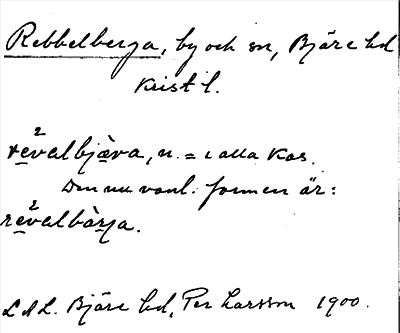 Rebbelberga, by och sn, Bjäre hd
Krist l.
re²valbjæra, n. = i alla kas.
Den nu vanl. formen är:
re²valbàrja.
L A L. Bjäre hd, Per Larsson 1900.